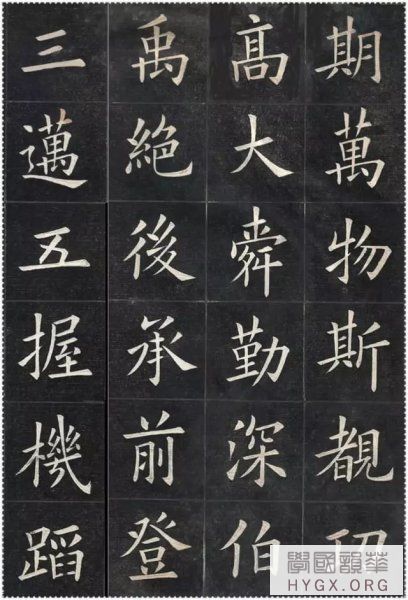 期萬物斯覩
髙大舜勤深伯
禹絕後承前登
三邁五握機蹈
華韻國學
HYGX.ORG